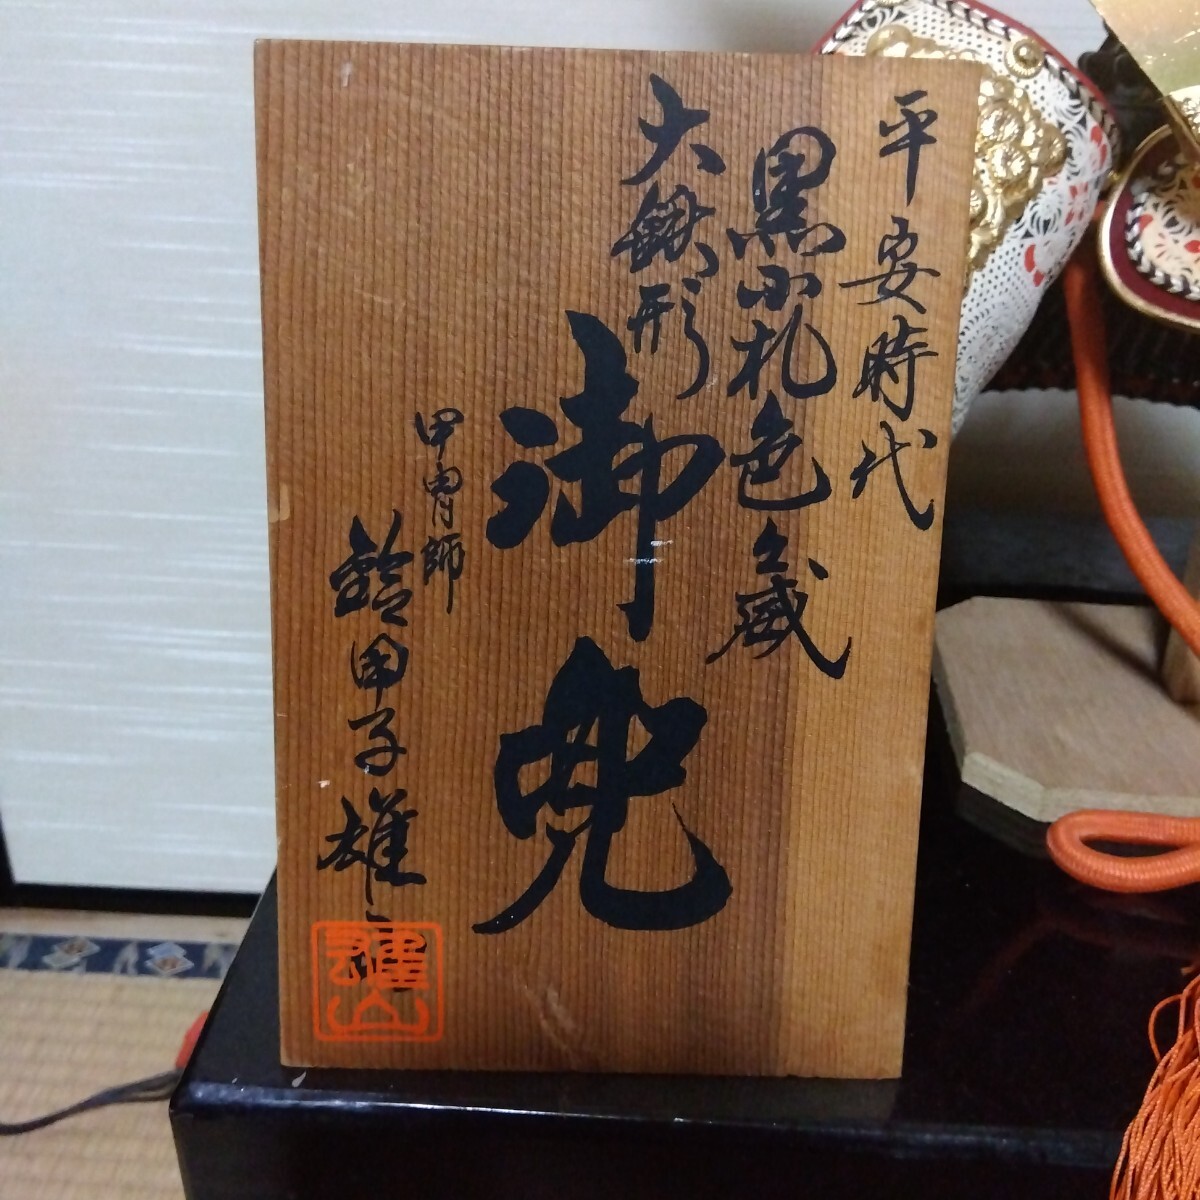 平安時代
黒小札色々威
大鍬形
御兜
甲冑師
鈴甲子雄山
雄山